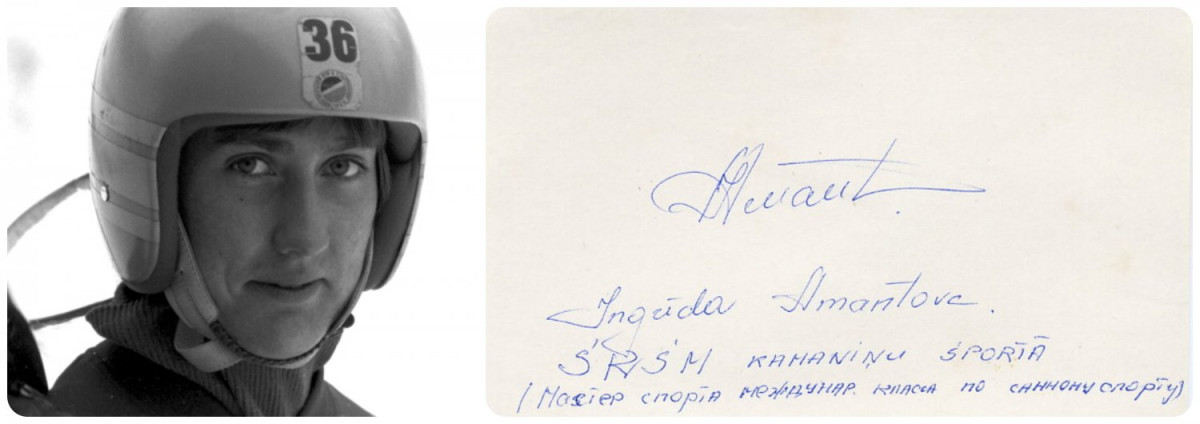 36
Amant.
Ingrīda Amantova.
KAMANIŅU SPORTĀ
(Мастер спорта междунар. класса по санному спорту)